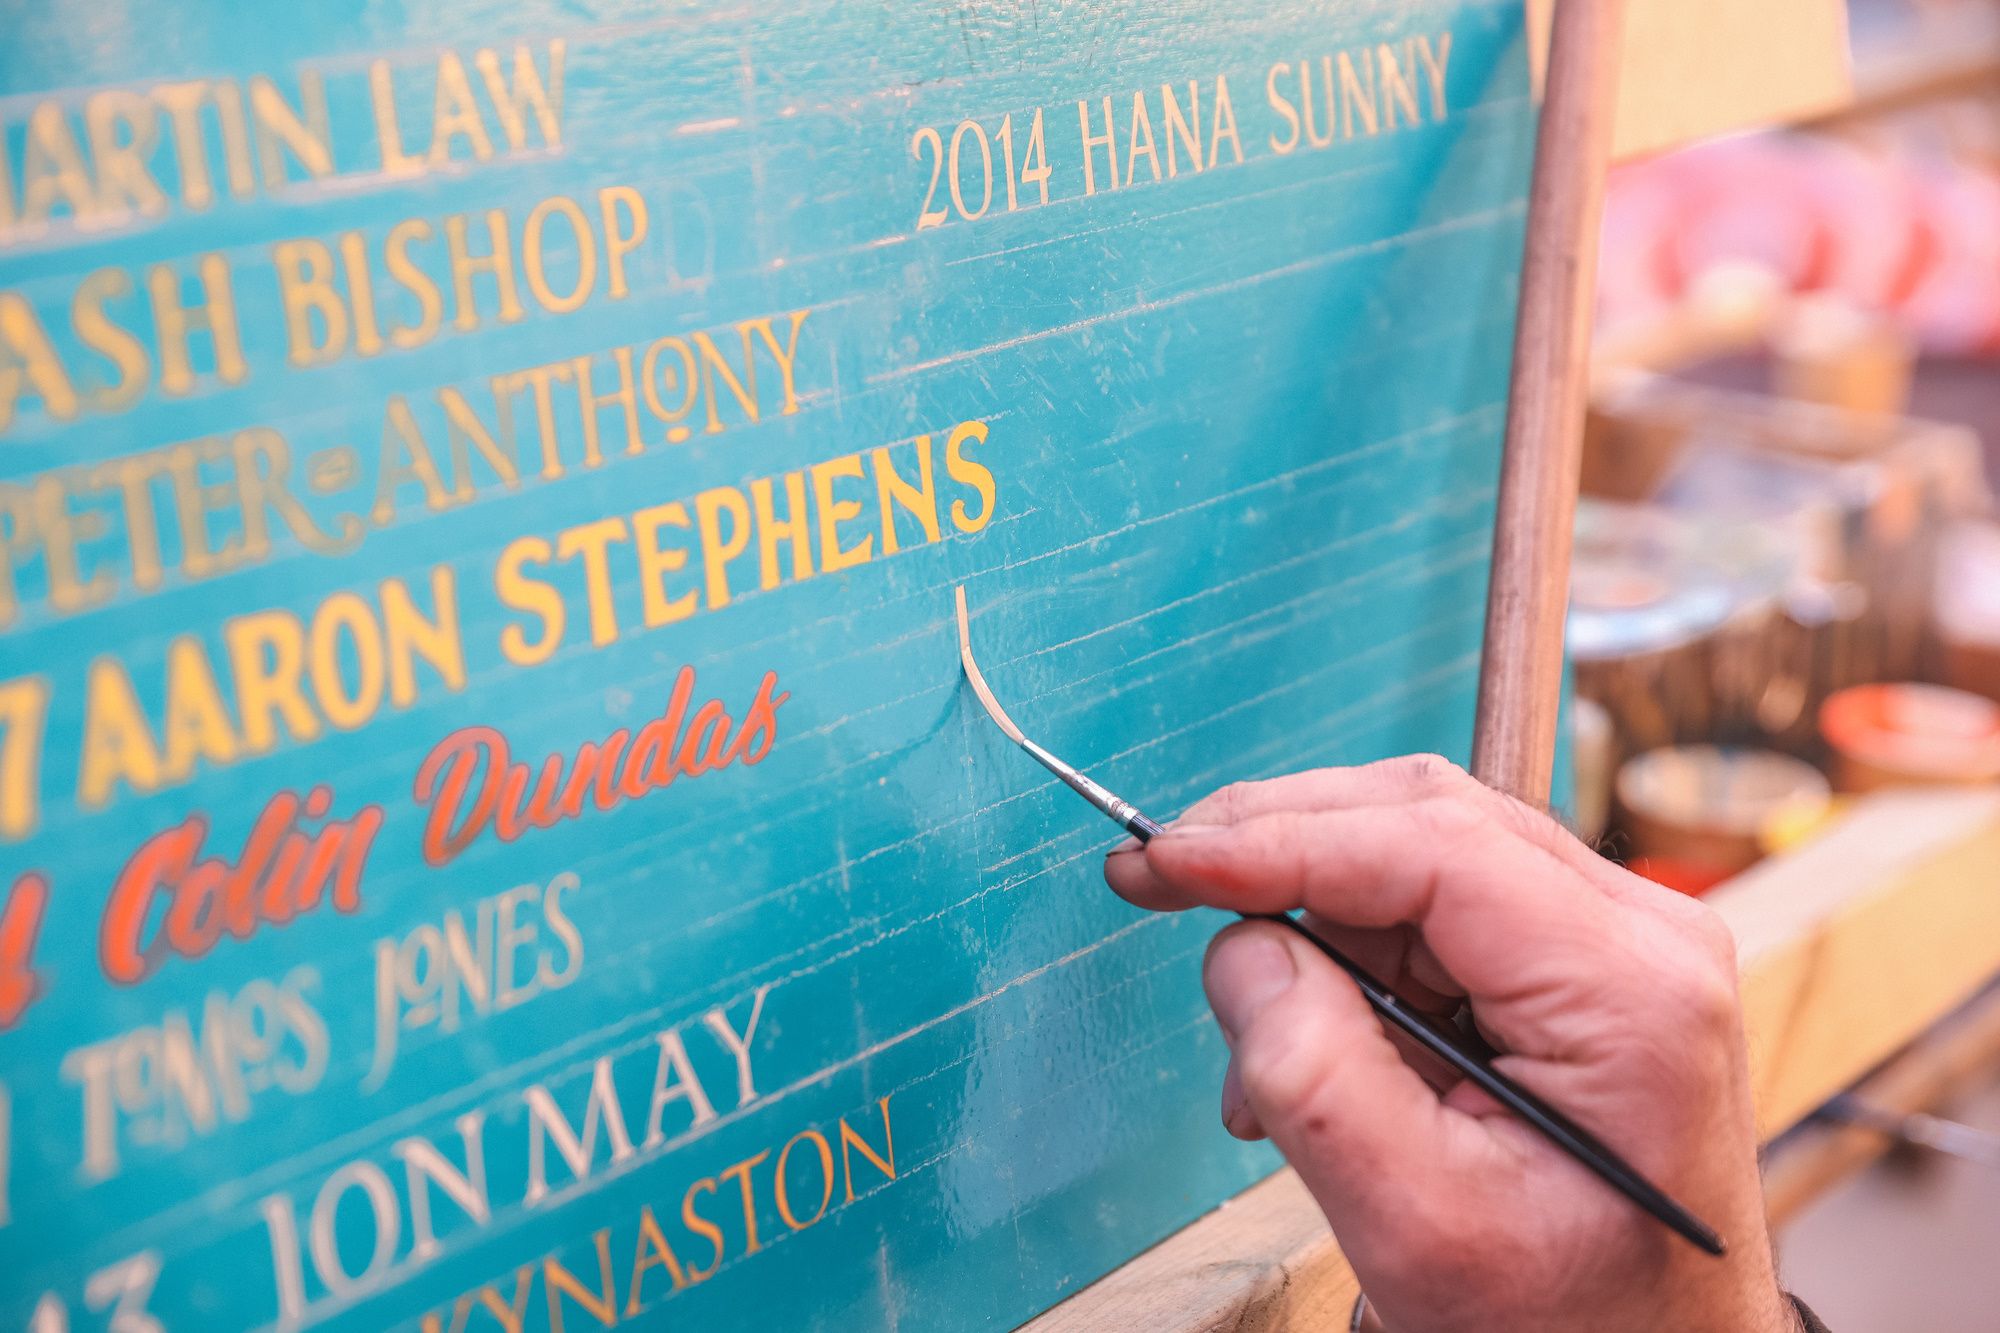 MARTIN LAW
ASH BISHOP
PETER ANTHONY
7 AARON STEPHENS
Colin Dundas
TOMOS JONES
13 JON MAY
KYNASTON
2014 HANA SUNNY